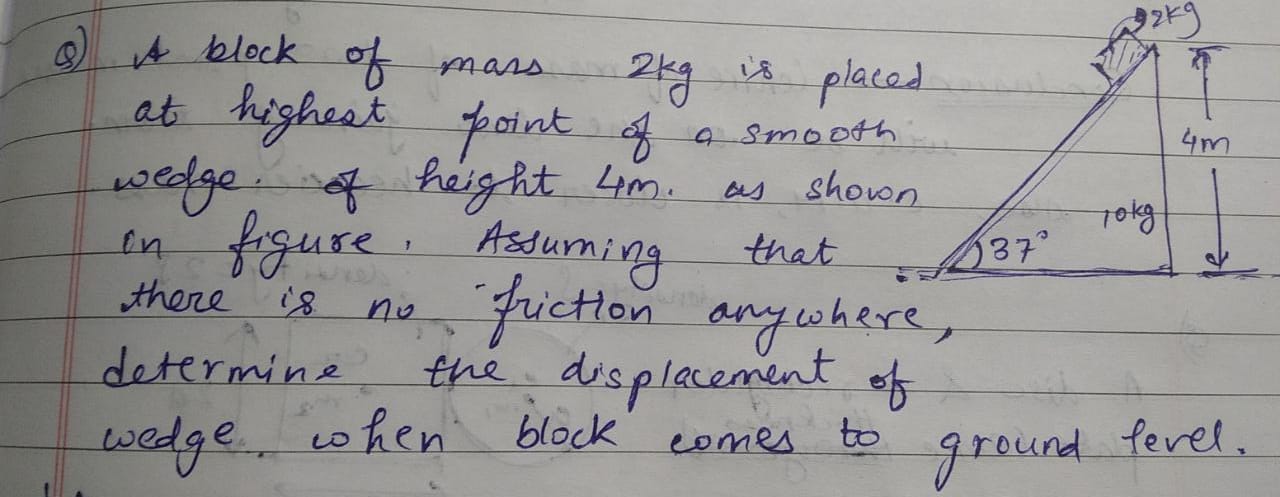 Q) A block of mass 2kg is placed
at highest point of a smooth
wedge. of height 4m. as shown
in figure. Assuming that
there is no friction anywhere,
determine the displacement of
wedge. when block comes to ground level.
2kg
4m
10kg
37°